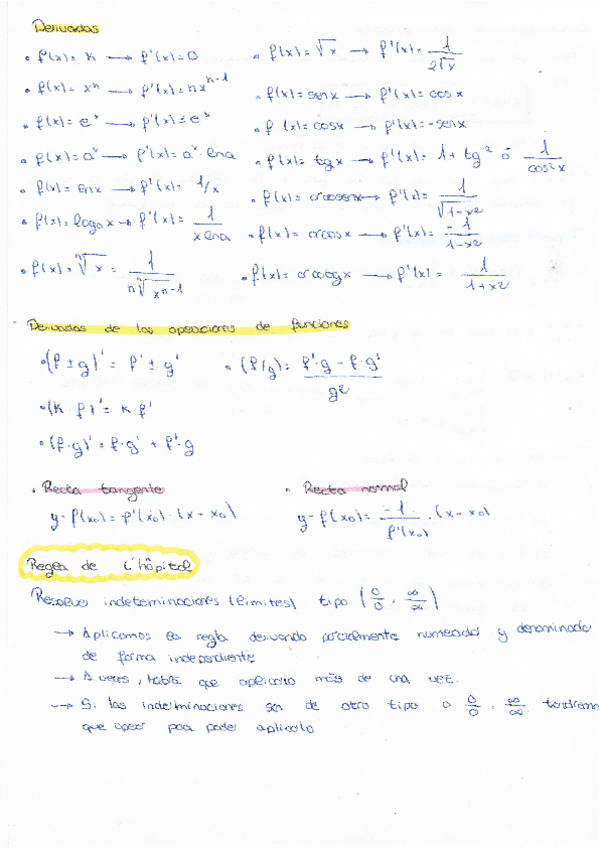 Derivadas
• f(x) = k → f'(x) = 0
• f(x) = √x → f'(x) = 1/(2√x)
• f(x) = xⁿ → f'(x) = nxⁿ⁻¹
• f(x) = senx → f'(x) = cosx
• f(x) = eˣ → f'(x) = eˣ
• f(x) = cosx → f'(x) = -senx
• f(x) = aˣ → f'(x) = aˣ · lna
• f(x) = tgx → f'(x) = 1 + tg² ó 1/cos²x
• f(x) = lnx → f'(x) = 1/x
• f(x) = arcosenx → f'(x) = 1/√(1-x²)
• f(x) = logₐx → f'(x) = 1/(x lna)
• f(x) = arcosx → f'(x) = -1/(1-x²)
• f(x) = ⁿ√x = 1/(n ⁿ√(xⁿ⁻¹))
• f(x) = arcotgx → f'(x) = 1/(1+x²)
Derivadas de las operaciones de funciones
• (f ± g)' = f' ± g'
• (f/g) = (f'·g - f·g')/g²
• (k · f)' = k · f'
• (f·g)' = f·g' + f'·g
• Recta tangente
• Recta normal
y - f(x₀) = f'(x₀) · (x - x₀)
y - f(x₀) = -1/f'(x₀) · (x - x₀)
Regla de L'hôpital
Resolver indeterminaciones (límites) tipo (0/0, ∞/∞)
→ Aplicamos la regla derivando parcialmente numerador y denominado
de forma independiente
→ A veces, habrá que aplicarlo más de una vez.
→ Si las indeterminaciones son de otro tipo a 0/0, ∞/∞ tendremo
que operar para poder aplicarlo